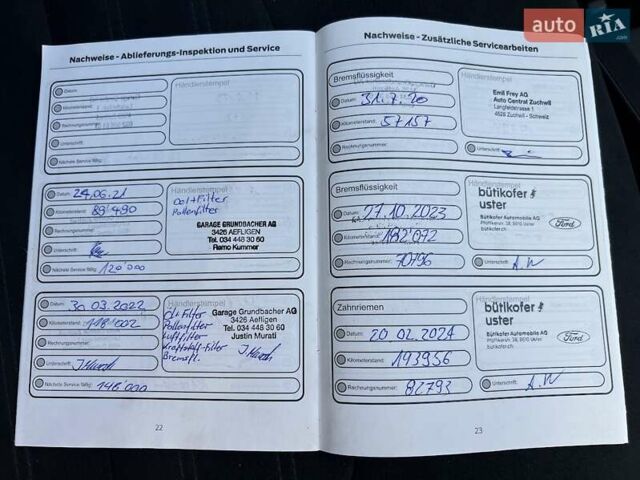 auto RIA.com
Nachweise - Ablieferungs-Inspektion und Service
Datum:
Händlerstempel
Kilometerstand:
Rechnungsnummer:
Unterschrift:
Nächste Service fällig:
Datum: 24.06.21
Händlerstempel
Kilometerstand: 89'490
Oel + Filter
Pollenfilter
Rechnungsnummer:
GARAGE GRUNDBACHER AG
3426 AEFLIGEN
Tel. 034 448 30 60
Remo Kummer
Unterschrift:
Nächste Service fällig: 120'000
Datum: 30.03.2022
Händlerstempel
Kilometerstand: 118'002
Öl + Filter
Pollenfilter
Luftfilter
Kraftstoff-Filter
Bremsfl.
Garage Grundbacher AG
3426 Aefligen
Tel. 034 448 30 60
Justin Murati
Rechnungsnummer:
Unterschrift:
Nächste Service fällig: 148'000
22
Nachweise - Zusätzliche Servicearbeiten
Bremsflüssigkeit
Händlerstempel
Datum: 31.7.20
Kilometerstand: 57157
Rechnungsnummer:
Emil Frey AG
Auto Central Zuchwil
Langfeldstrasse 1
4528 Zuchwil - Schweiz
Unterschrift:
Bremsflüssigkeit
Händlerstempel
Datum: 27.10.2023
Kilometerstand: 182'072
Rechnungsnummer: 70796
bütikofer
uster
Bütikofer Automobile AG
Pfäffikerstr. 38, 8610 Uster
bütikofer.ch
Ford
Unterschrift: A.W
Zahnriemen
Datum: 20 02.2024
Kilometerstand: 193956
Rechnungsnummer: 82793
bütikofer
uster
Bütikofer Automobile AG
Pfäffikerstr. 38, 8610 Uster
bütikofer.ch
Ford
Unterschrift: A.W
23